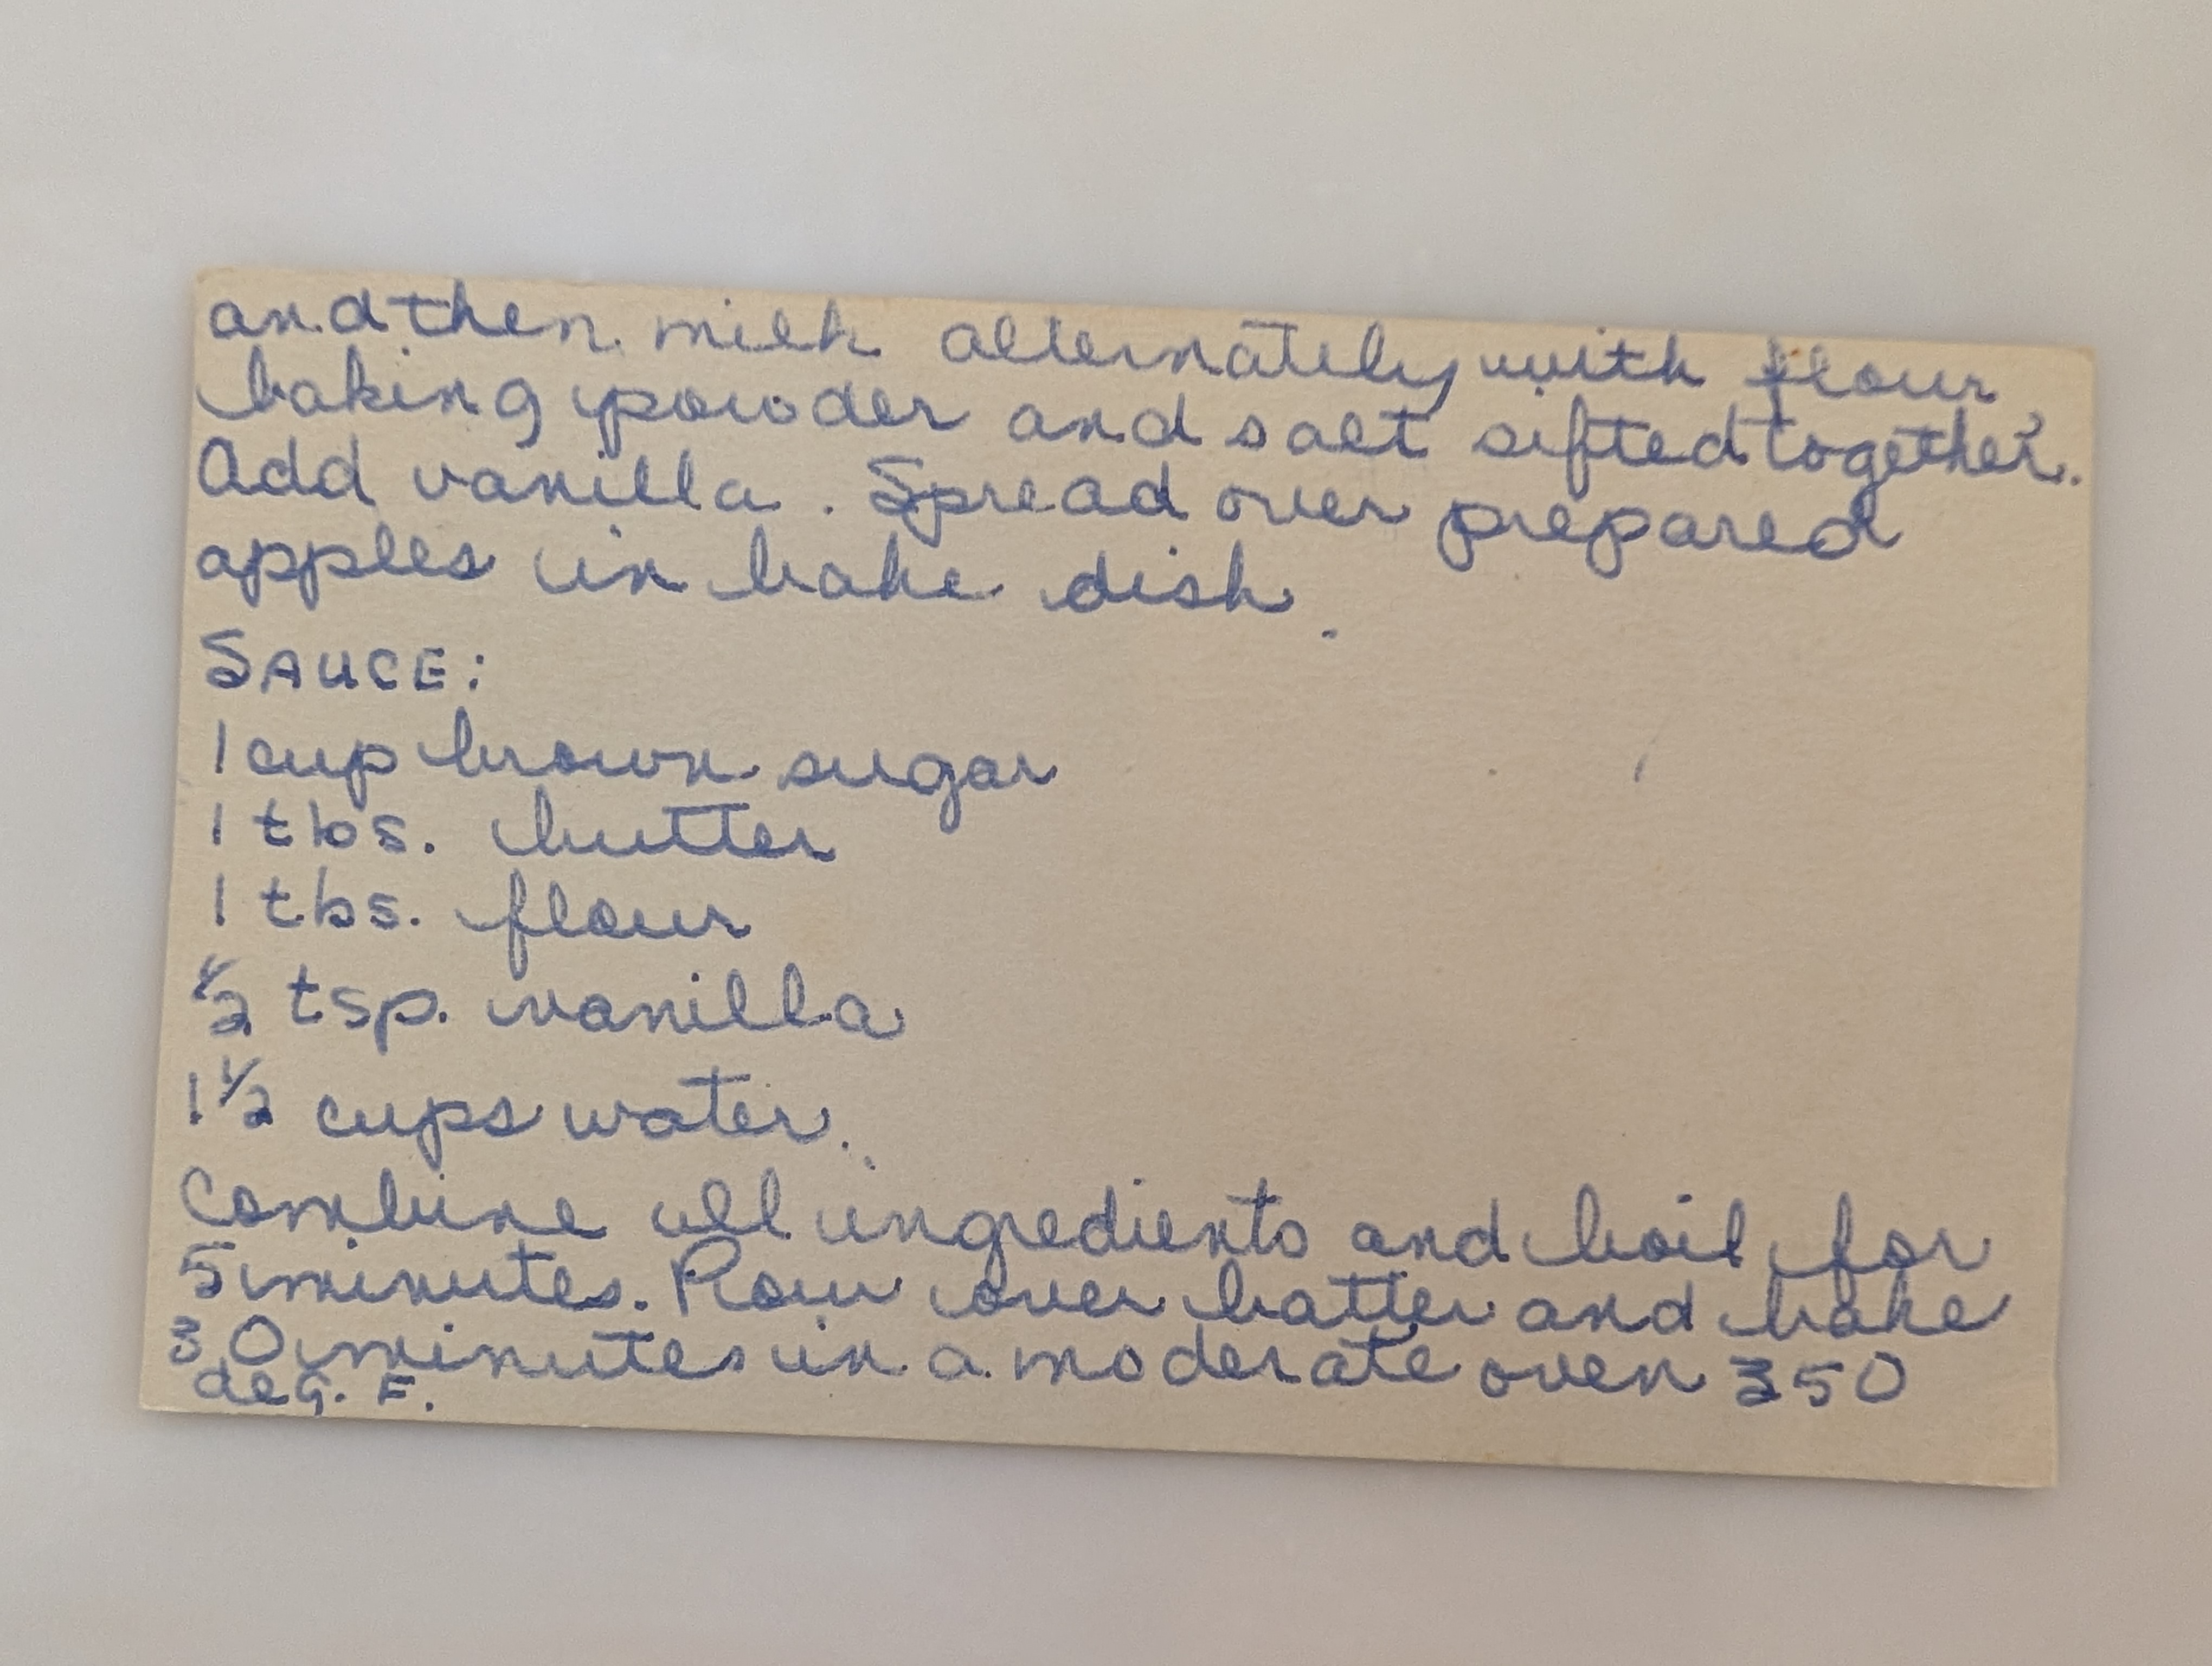 and then milk alternately with flour,
baking powder and salt sifted together.
Add vanilla. Spread over prepared
apples in bake dish.
SAUCE:
1 cup brown sugar
1 tbs. butter
1 tbs. flour
½ tsp. vanilla
1½ cups water.
Combine all ingredients and boil for
5 minutes. Pour over batter and bake
30 minutes in a moderate oven 350
deg. F.